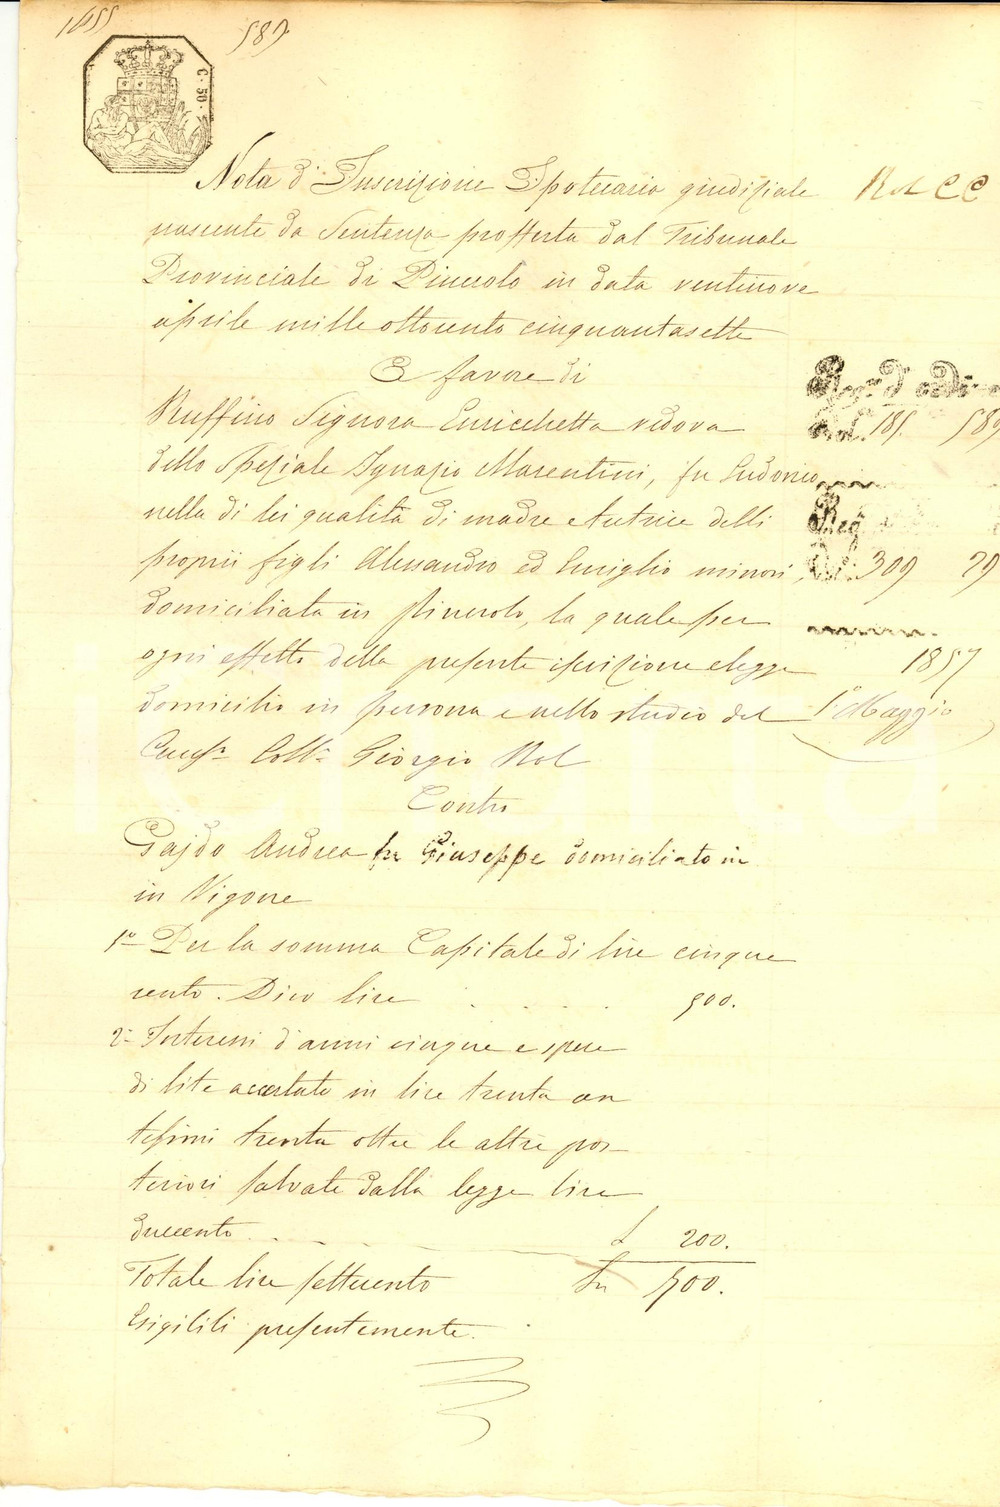 1655
589
C. 50.
Nota d'Inscrizione Ipotecaria giudiziale
nascente da Sentenza profferta dal Tribunale
Provinciale di Pinerolo in data ventinove
aprile mille ottocento cinquantasette
A favore di
Ruffino Signora Enrichetta vedova
dello Speziale Ignazio Marentini, fu Ludovico
nella di lei qualità di madre e tutrice delli
proprii figli Alessandro ed Emiglio minori,
domiciliata in Pinerolo, la quale per
ogni effetto della presente iscrizione elegge
domicilio in persona e nello studio del
Caus. Coll. Giorgio Rol
Contro
Gajdo Andrea fu Giuseppe domiciliato in
in Vigone
1° Per la somma Capitale di lire cinque
cento. Dico lire 500.
2° Interessi d'anni cinque e spese
di lite accertate in lire trenta cen
tesimi trenta oltre le altre pos
teriori salvate dalla legge lire
duecento £ 200.
Totale lire settecento Ln 700.
Esigibili presentemente.
Rol CC
Reg. d'ordine
Vol. 185. 589
Reg
Vol. 309 79
1857
1° Maggio